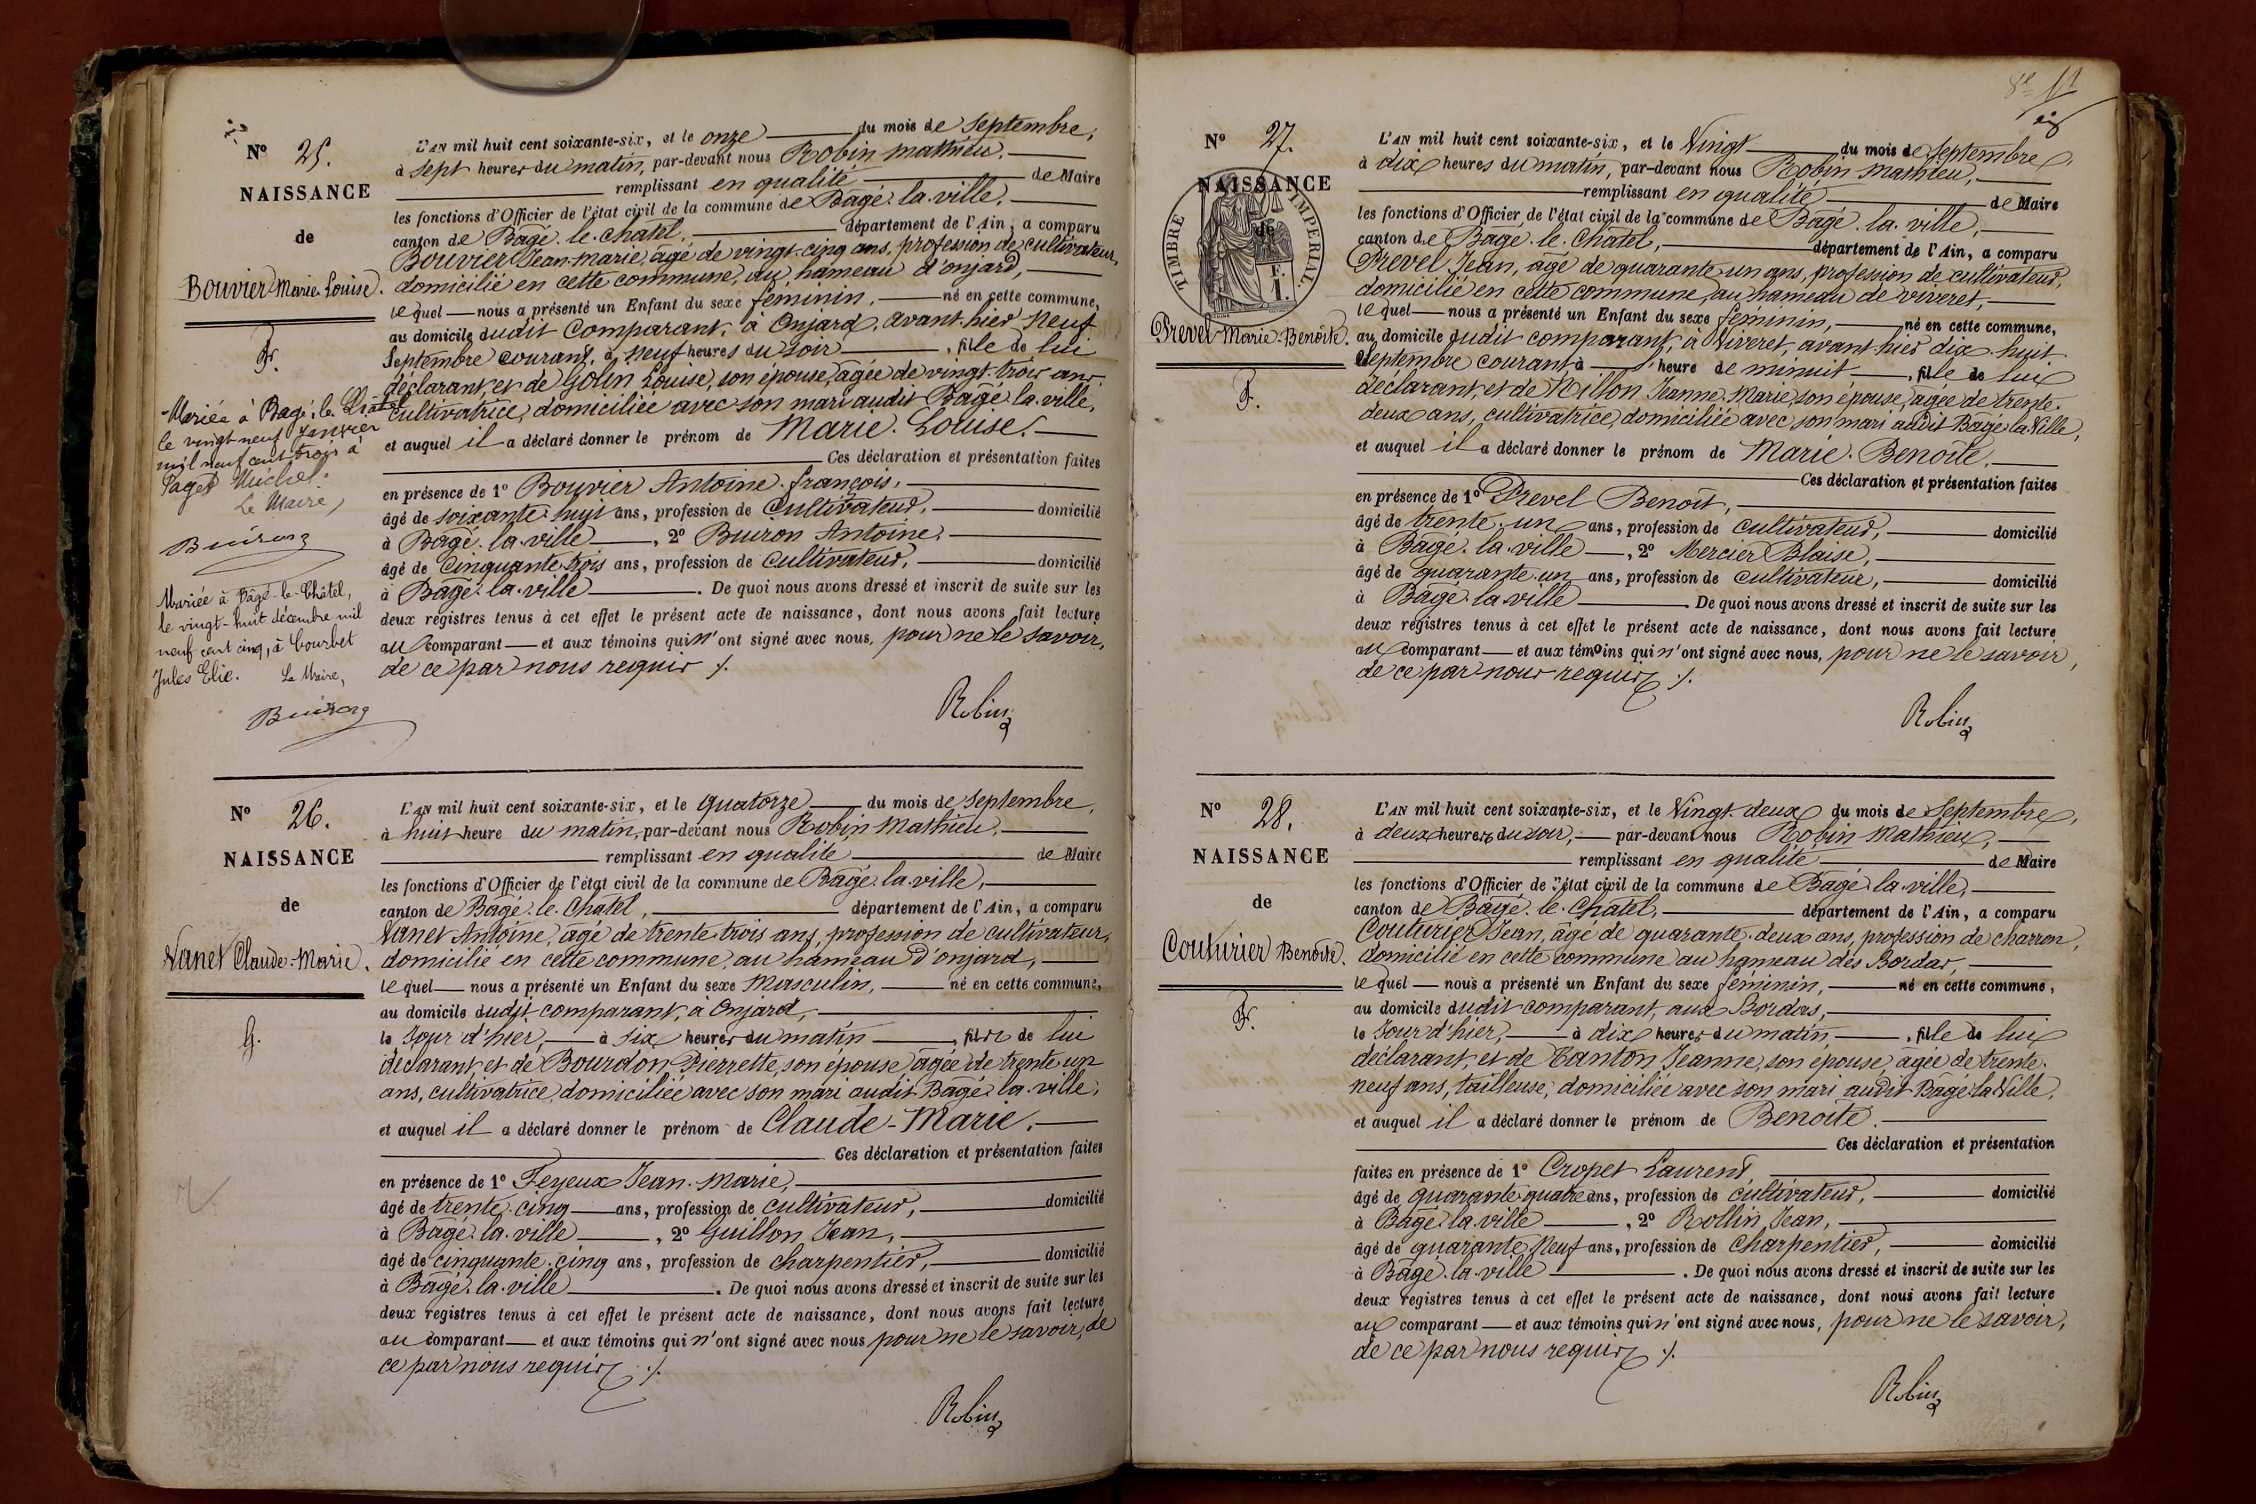 N° 25.
NAISSANCE
de
Bouvier Marie-Louise.
F.
Mariée à Bagé-le-Châtel
le vingt neuf Janvier
mil neuf cent trois à
Paget Michel.
Le Maire,
Buiron
Mariée à Bâgé-le-Châtel,
le vingt-huit décembre mil
neuf cent cinq, à Courbet
Jules Elie. Le Maire,
Buiron
L'AN mil huit cent soixante-six, et le onze du mois de Septembre,
à sept heures du matin, par-devant nous Robin Mathieu,
remplissant en qualité de Maire
les fonctions d'Officier de l'état civil de la commune de Bâgé-la-ville,
canton de Bâgé-le-Chatel, département de l'Ain, a comparu
Bouvier Jean-Marie, âgé de vingt-cinq ans, profession de cultivateur,
domicilié en cette commune, au hameau d'onjard,
lequel nous a présenté un Enfant du sexe féminin, né en cette commune,
au domicile dudit Comparant, à Onjard, avant-hier Neuf
Septembre courant, à Neuf heures du soir, fille de lui
déclarant, et de Golin Louise, son épouse, âgée de vingt-trois ans,
cultivatrice, domiciliée avec son mari audit Bâgé-la-ville,
et auquel il a déclaré donner le prénom de Marie-Louise.
Ces déclaration et présentation faites
en présence de 1° Bouvier Antoine-françois,
âgé de soixante-huit ans, profession de Cultivateur, domicilié
à Bâgé-la-ville, 2° Buiron Antoine,
âgé de Cinquante-trois ans, profession de Cultivateur, domicilié
à Bâgé-la-ville. De quoi nous avons dressé et inscrit de suite sur les
deux registres tenus à cet effet le présent acte de naissance, dont nous avons fait lecture
au comparant et aux témoins qui n'ont signé avec nous, pour ne le savoir,
de ce par nous requis ./.
Robin
N° 26.
NAISSANCE
de
Vanet Claude-Marie.
G.
L'AN mil huit cent soixante-six, et le quatorze du mois de Septembre,
à huit heure du matin, par-devant nous Robin Mathieu,
remplissant en qualité de Maire
les fonctions d'Officier de l'état civil de la commune de Bâgé-la-ville,
canton de Bâgé-le-Chatel, département de l'Ain, a comparu
Vanet Antoine, âgé de trente trois ans, profession de cultivateur,
domicilié en cette commune, au hameau d'onjard,
lequel nous a présenté un Enfant du sexe Masculin, né en cette commune,
au domicile dudit comparant, à Onjard,
le Jour d'hier, à six heures du matin, fils de lui
déclarant, et de Bourdon Pierrette, son épouse, âgée de trente un
ans, cultivatrice, domiciliée avec son mari audit Bâgé-la-ville,
et auquel il a déclaré donner le prénom de Claude-Marie.
Ces déclaration et présentation faites
en présence de 1° Feyeux Jean-Marie,
âgé de trente-cinq ans, profession de cultivateur, domicilié
à Bâgé-la-ville, 2° Guillon Jean,
âgé de cinquante-cinq ans, profession de charpentier, domicilié
à Bâgé-la-ville. De quoi nous avons dressé et inscrit de suite sur les
deux registres tenus à cet effet le présent acte de naissance, dont nous avons fait lecture
au comparant et aux témoins qui n'ont signé avec nous pour ne le savoir, de
ce par nous requis ./.
Robin
N° 27.
NAISSANCE
de
TIMBRE IMPERIAL.
F. I.
Prevel Marie-Benoîte.
F.
L'AN mil huit cent soixante-six, et le Vingt du mois de Septembre,
à dix heures du matin, par-devant nous Robin Mathieu,
remplissant en qualité de Maire
les fonctions d'Officier de l'état civil de la commune de Bâgé-la-ville,
canton de Bâgé-le-Châtel, département de l'Ain, a comparu
Prevel Jean, âgé de quarante-un ans, profession de cultivateur,
domicilié en cette commune, au hameau de viveret,
lequel nous a présenté un Enfant du sexe féminin, né en cette commune,
au domicile dudit comparant, à Viveret, avant-hier dix-huit
Septembre courant à l'heure de minuit, fille de lui
déclarant, et de Nillon Jeanne-Marie, son épouse, âgée de trente-
deux ans, cultivatrice, domiciliée avec son mari audit Bâgé-la-Ville,
et auquel il a déclaré donner le prénom de Marie-Benoîte.
Ces déclaration et présentation faites
en présence de 1° Prevel Benoît,
âgé de trente-un ans, profession de cultivateur, domicilié
à Bâgé-la-ville, 2° Mercier Blaise,
âgé de quarante-un ans, profession de cultivateur, domicilié
à Bâgé-la-ville. De quoi nous avons dressé et inscrit de suite sur les
deux registres tenus à cet effet le présent acte de naissance, dont nous avons fait lecture
au comparant et aux témoins qui n'ont signé avec nous, pour ne le savoir,
de ce par nous requis ./.
Robin
N° 28.
NAISSANCE
de
Couturier Benoîte.
F.
L'AN mil huit cent soixante-six, et le Vingt-deux du mois de Septembre,
à deux heures du soir, par-devant nous Robin Mathieu,
remplissant en qualité de Maire
les fonctions d'Officier de l'état civil de la commune de Bâgé-la-ville,
canton de Bâgé-le-Châtel, département de l'Ain, a comparu
Couturier Jean, âgé de quarante-deux ans, profession de charron,
domicilié en cette commune au hameau des Bordes,
lequel nous a présenté un Enfant du sexe féminin, né en cette commune,
au domicile dudit comparant, aux Bordes,
le Jour d'hier, à dix heures du matin, fille de lui
déclarant, et de Tanton Jeanne, son épouse, âgée de trente-
neuf ans, tailleuse, domiciliée avec son mari audit Bâgé-la-Ville,
et auquel il a déclaré donner le prénom de Benoîte.
Ces déclaration et présentation
faites en présence de 1° Cropet Laurent,
âgé de quarante-quatre ans, profession de cultivateur, domicilié
à Bâgé-la-ville, 2° Rollin Jean,
âgé de quarante Neuf ans, profession de Charpentier, domicilié
à Bâgé-la-ville. De quoi nous avons dressé et inscrit de suite sur les
deux registres tenus à cet effet le présent acte de naissance, dont nous avons fait lecture
au comparant et aux témoins qui n'ont signé avec nous, pour ne le savoir,
de ce par nous requis ./.
Robin